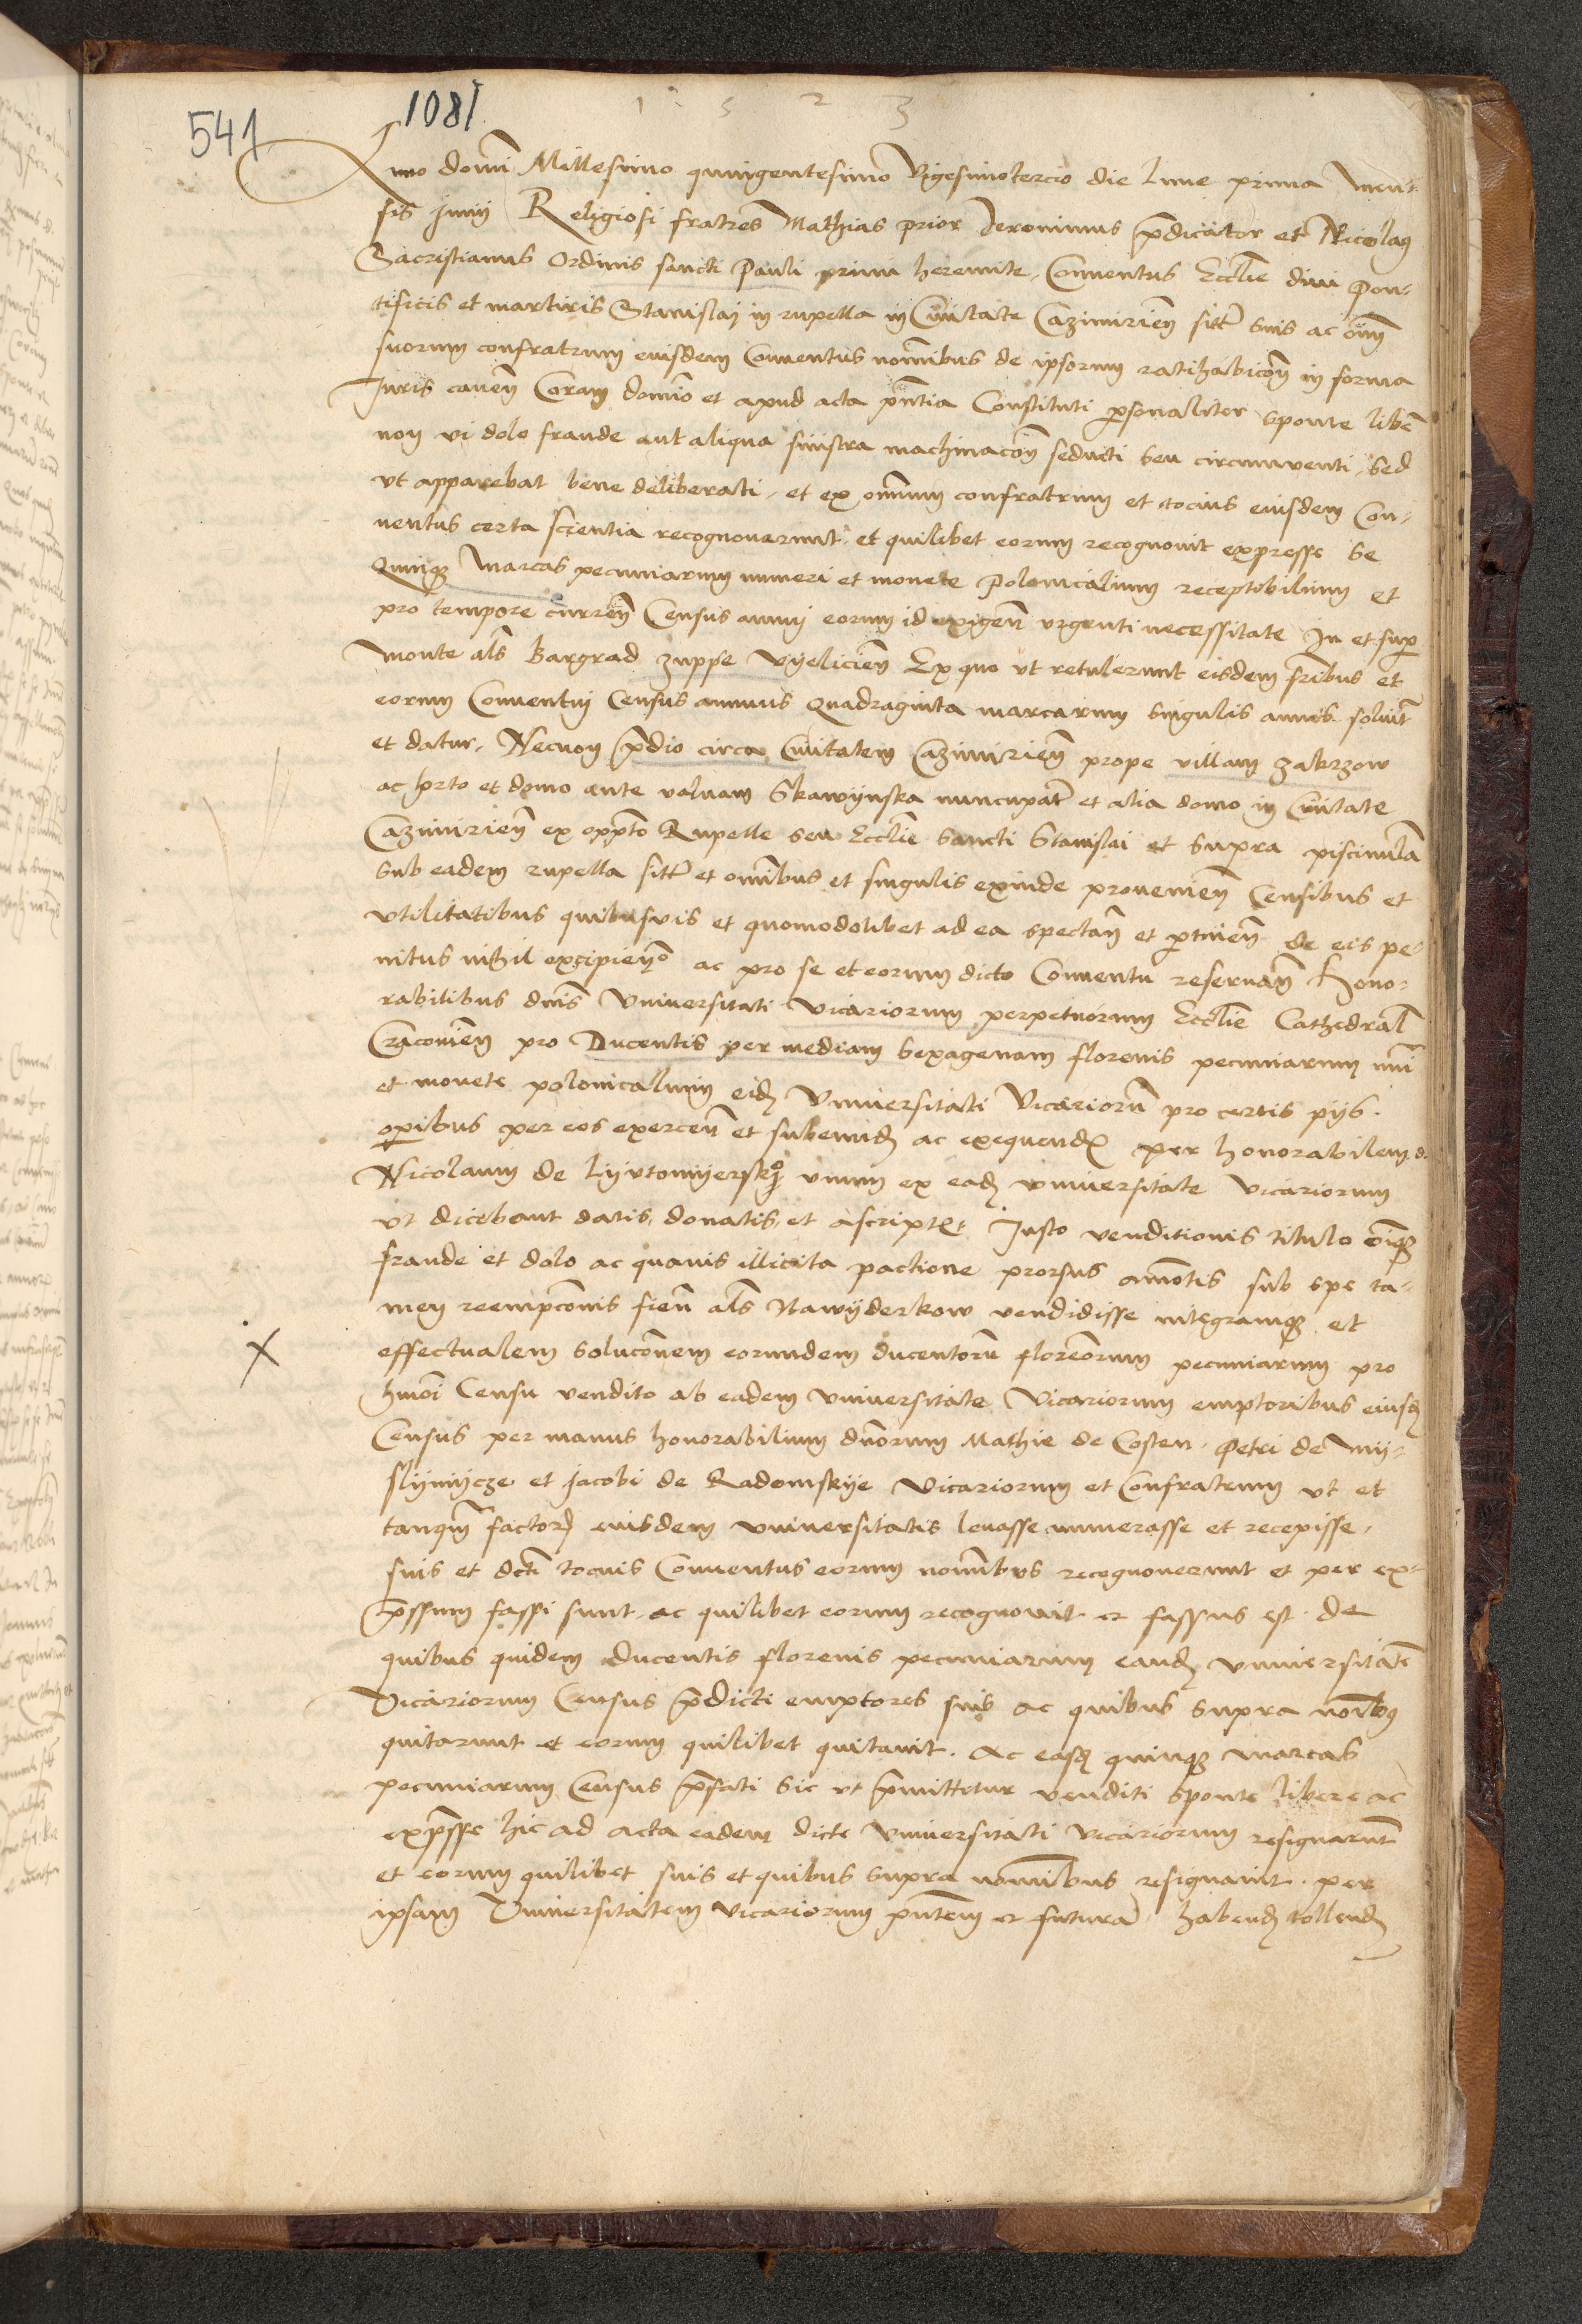 1081
541
1 5 2 3
Anno domī Millesimo quingentesimo Vigesimotercio die Lune prima men-
sis Junij Religiosi fratres Mathias prior Jeronimus p̄dicator et Nicolaus
Sacristianus Ordinis sancti Pauli primi heremite, Conuentus Ecclīe diui Pon-
tificis et martiris Stanislaj in rupella in Ciuitate Cazimirieñ sitī suis ac om̄
suorum confratrum eiusdem Conuentus nomībus de ipsorum ratihabicoñ in forma
Juris caueñ Coram domīo et apud acta pn̄tia Constituti personaliter sponte libē
non vi dolo fraude aut aliqua sinistra machinacoñ seducti seu circumuenti, sed
vt apparebat bene deliberati, et ex omnium confratrum et tocius eiusdem Con-
uentus certa scientia recognouerunt, et quilibet eorum recognouit expresse se
Quinqȝ Marcas pecuniarum numeri et monete Polonicalium receptibilium et
pro tempore curreñ Census annuj eorum id exigeñ vrgenti necessitate In et super
monte als Bargrad zuppe Vyelicieñ Ex quo vt retulerunt eisdem fribus et
eorum Conuentuj Census annuus Quadraginta marcarum singulis annis soluitr
et datur, Necnon p̄dio circa Ciuitatem Cazimirieñ prope villam Zakrzow
ac horto et domo ante valuam Skawynska nuncupatī et alia domo in Ciuitate
Cazimirieñ ex oppto Rupelle seu Ecclīe Sancti Stanislai et supra piscinulā
sub eadem rupella sitī et omībus et singulis exinde prouenieñ Censibus et
vtilitatibus quibusuis et quomodolibet ad ea spectañ et ptineñ de eis pe-
nitus nihil excipieñº ac pro se et eorum dicto Conuentu reseruañ Hono-
rabilibus dnīs Vniuersitati Vicariorum perpetuorum Ecclīe Cathedral
Cracouieñ pro Ducentis per mediam sexagenam florenis pecuniarum nuī
et monete polonicalium eidē Vniuersitati Vicariorū pro certis pijs
opībus per eos exerceñ et subeundē ac exequendē per honorabilem d.
Nicolaum de Lyutomyersko vnum ex eadē vniuersitate vicariorum
vt dicebant datis, donatis, et ascriptis. Justo venditionis titulo oīqȝ
fraude et dolo ac quauis illicita pactione prorsus amotis sub spe ta-
men reempcōnis fieñ als Nawyderkow vendidisse integramqȝ et
effectualem solucōnem eorundem ducentorū florenorum pecuniarum pro
hmoī Censu vendito ab eadem vniuersitate Vicariorum emptoribus eiusdē
Census per manus honorabilium dnōrum Mathie de Costen, Petri de My-
slymycze et Jacobi de Radomskye Vicariorum et Confratrum vt et
tanqm̄ factorū eiusdem vniuersitatis leuasse numerasse et recepisse,
suis et dctī tocius Conuentus eorum nomībus recognouerunt et per ex-
p̄ssum fassi sunt ac quilibet eorum recognouit et fassus est. De
quibus quidem Ducentis florenis pecuniarum eandē vniuersitatē
Vicariorum Census p̄dicti emptores suis ac quibus supra noībus
quitarunt et eorum quilibet quitauit. Ac easdē quinqȝ marcas
pecuniarum Census p̄fati sic vt p̄mittetur venditi sponte libere ac
exp̄sse hic ad acta eadem dicte vniuersitati vicariorum resignarunt
et eorum quilibet suis et quibus supra nomībus resignauit, per
ipsam Vniuersitatem vicariorum pn̄tem et futurā habendē tollendē